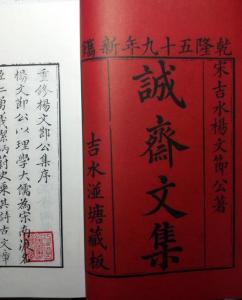 乾隆五十九年新鐫
宋吉水楊文節公著
誠齋文集
吉水湴塘藏板
重修楊文節公集序
楊文節公以理學大儒為宋南渡名
炳蔚史乘其詩古文